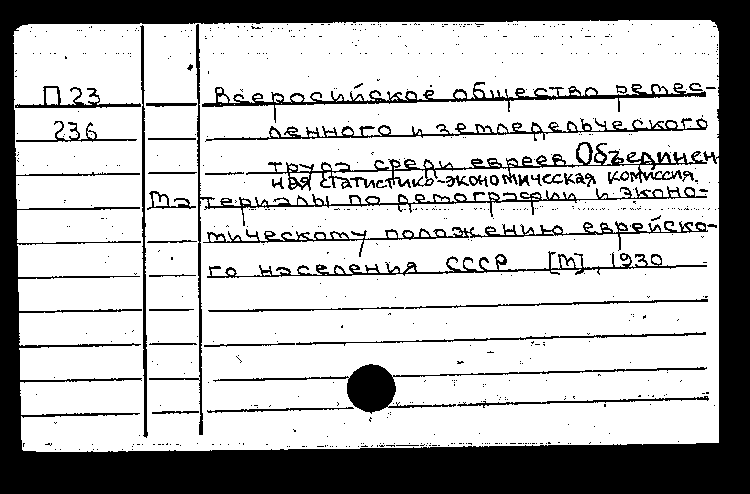 П23 Всеросийское общество ремес-
236 ленного и земледельческого
труда среди евреев Объединен-
ная статистико-экономическая комиссия.
Материалы по демографии и эконо-
мическому положению еврейско-
го населения СССР [М], 1930